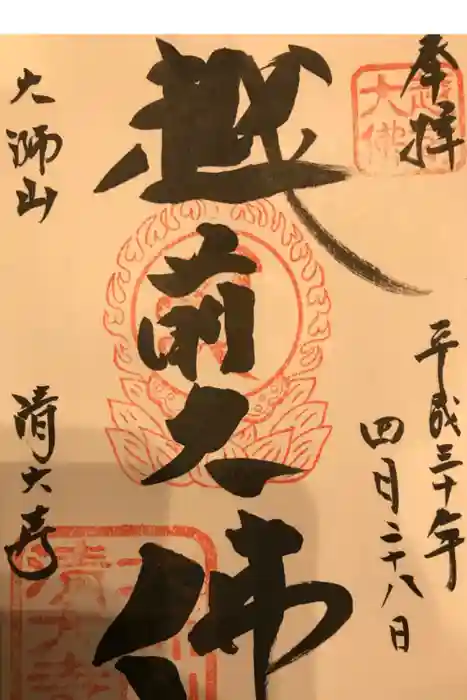 奉拝
越前大佛
平成三十年
四月二十八日
越前大佛
大師山
清大寺